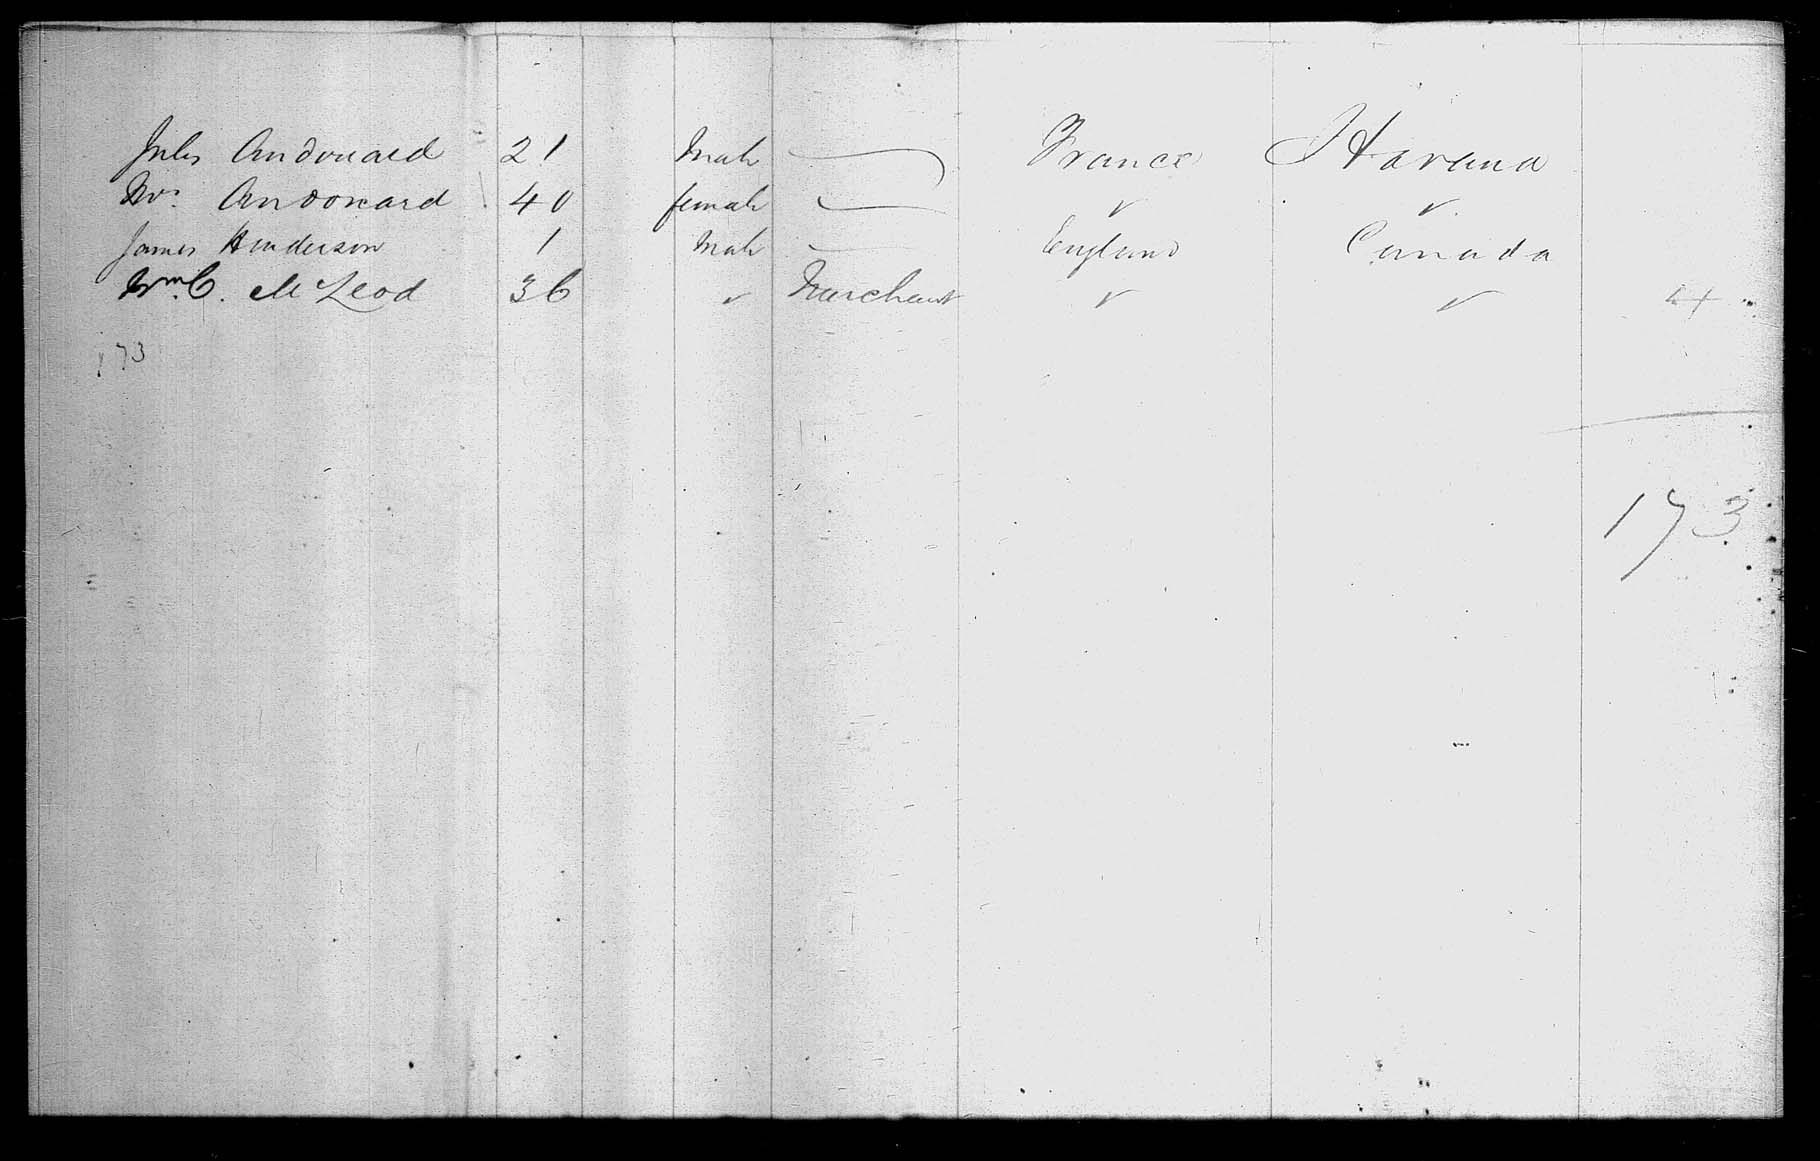 Jules Andouard 21 Male France Havana
Mrs. Andouard 40 female ✓ ✓
James Henderson 1 Male England Canada
Wm. C. McLeod 36 ✓ Merchant ✓ ✓
173
173